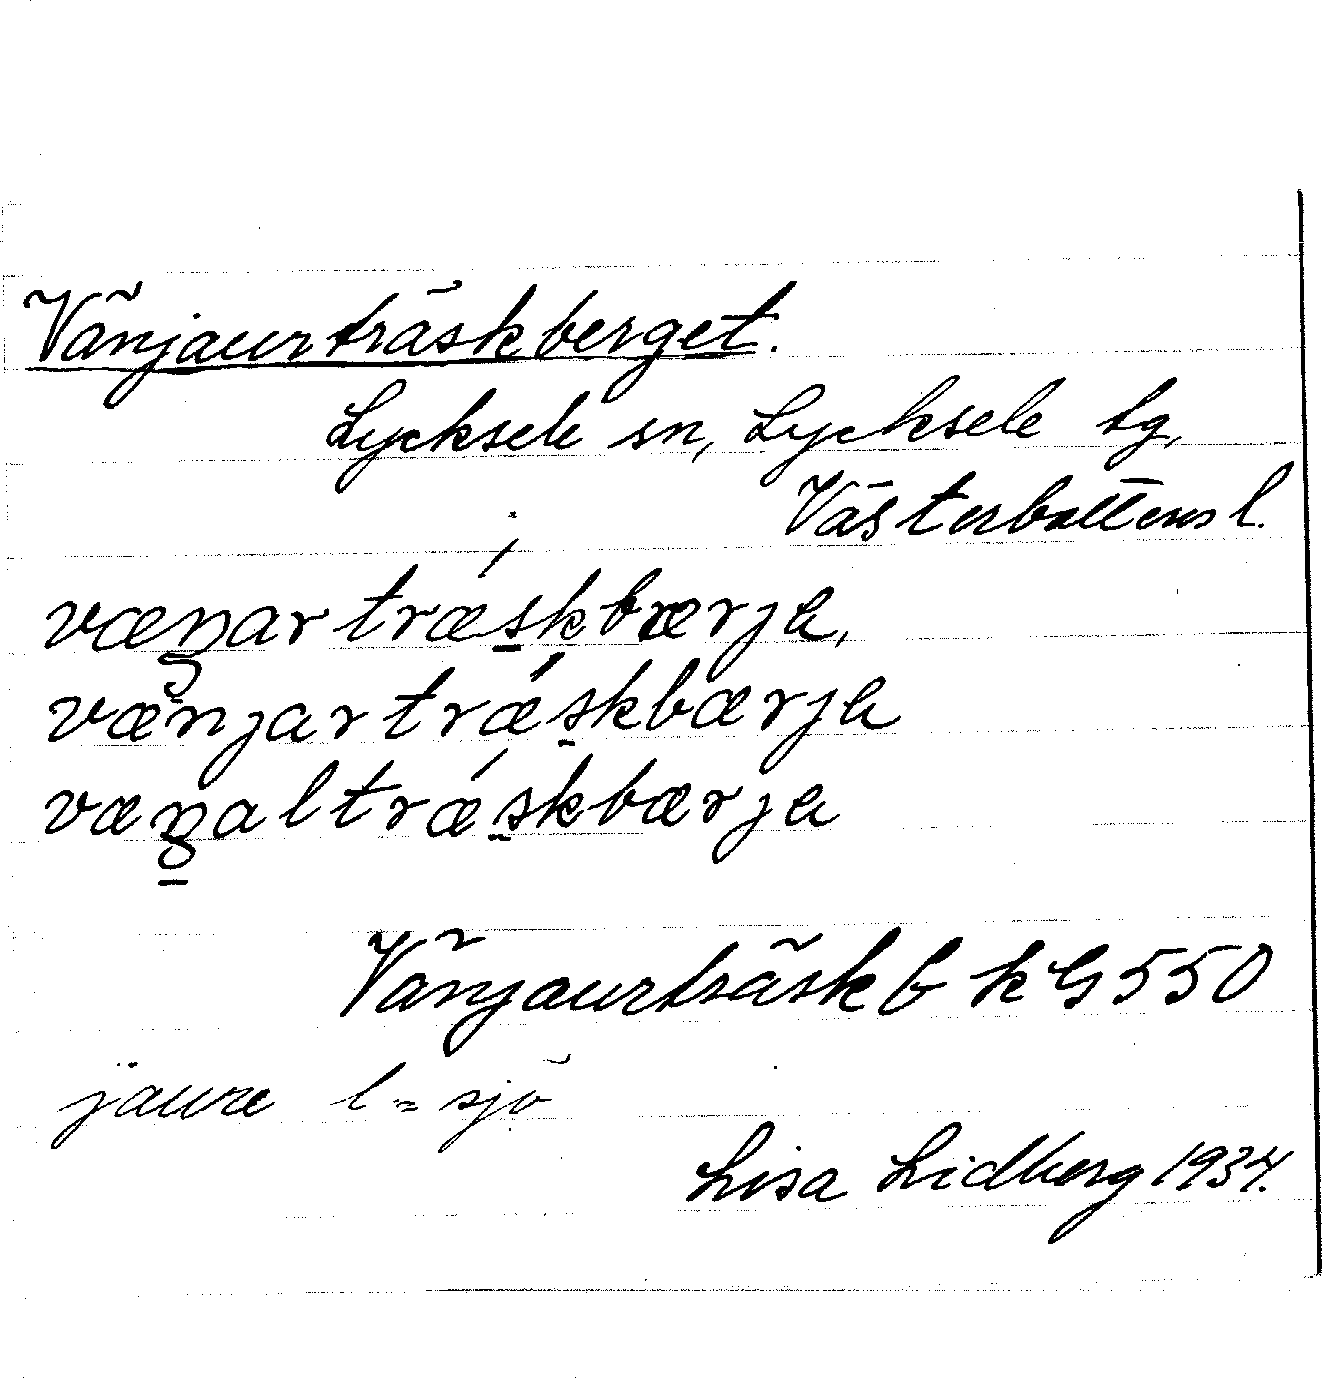 Vänjaurträskberget.
Lycksele sn, Lycksele tg,
Västerbottens l.
væŋartræ´skbærja,
vænjartræ´skbærja
væŋaltræ´skbærja
Vänjaurträsk b k G 550
jaure l = sjö
Lisa Lidberg 1934.